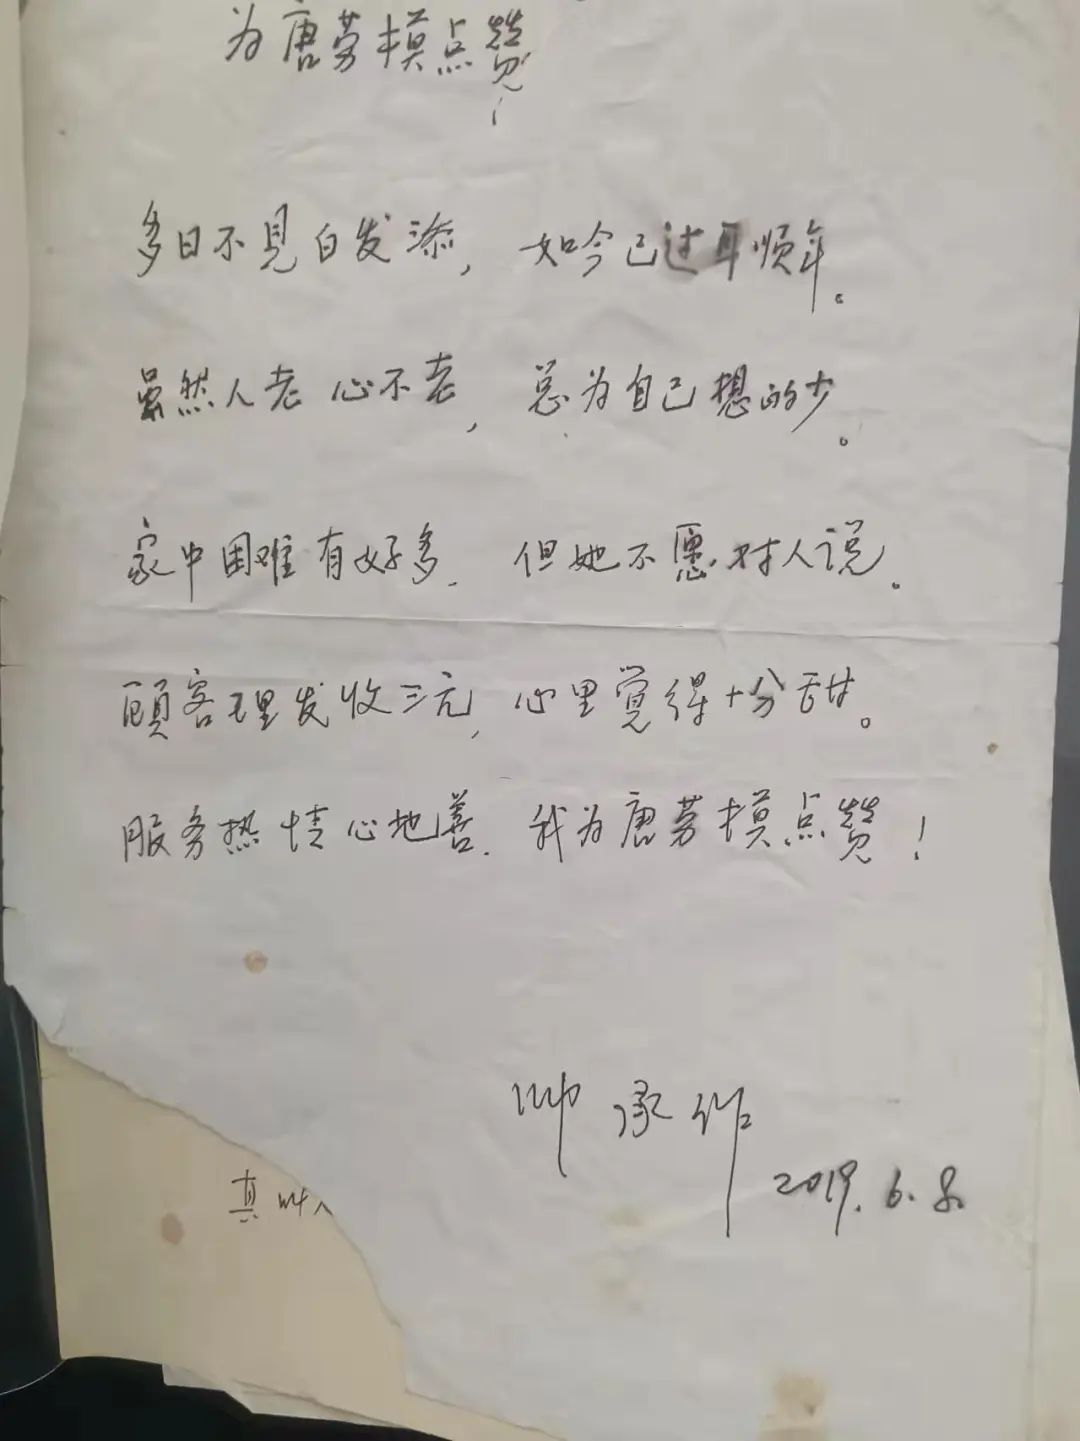 为唐劳模点赞!
多日不見白发添，如今已过耳顺年。
虽然人老心不老，总为自己想的少。
家中困难有好多．但她不愿对人说。
顾客理发收三元，心里覚得十分甜。
服务热情心地善．我为唐劳模点赞！
帅承作
2019.6.8.
真叫人